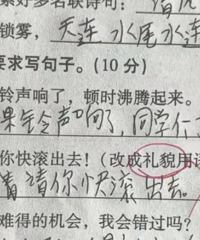 锁雾,天连水尾水连
要求写句子。(10 分)
铃声响了,顿时沸腾起来。
果铃声响了,同学们
你快滚出去!(改成礼貌用语
请你快滚出去。
难得的机会,我会错过吗?